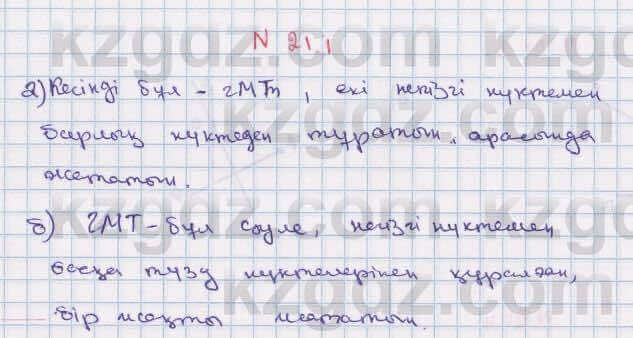 N 21.1
а) Кесінді бұл - гМТп, екі негізгі нүктемен
барлық нүктеден тұратын. арасында
жататын.
б) ГМТ - бұл сәуле, негізгі нүктемен
басқа түзу нүктелерінен құралған,
бір жақты жататын.